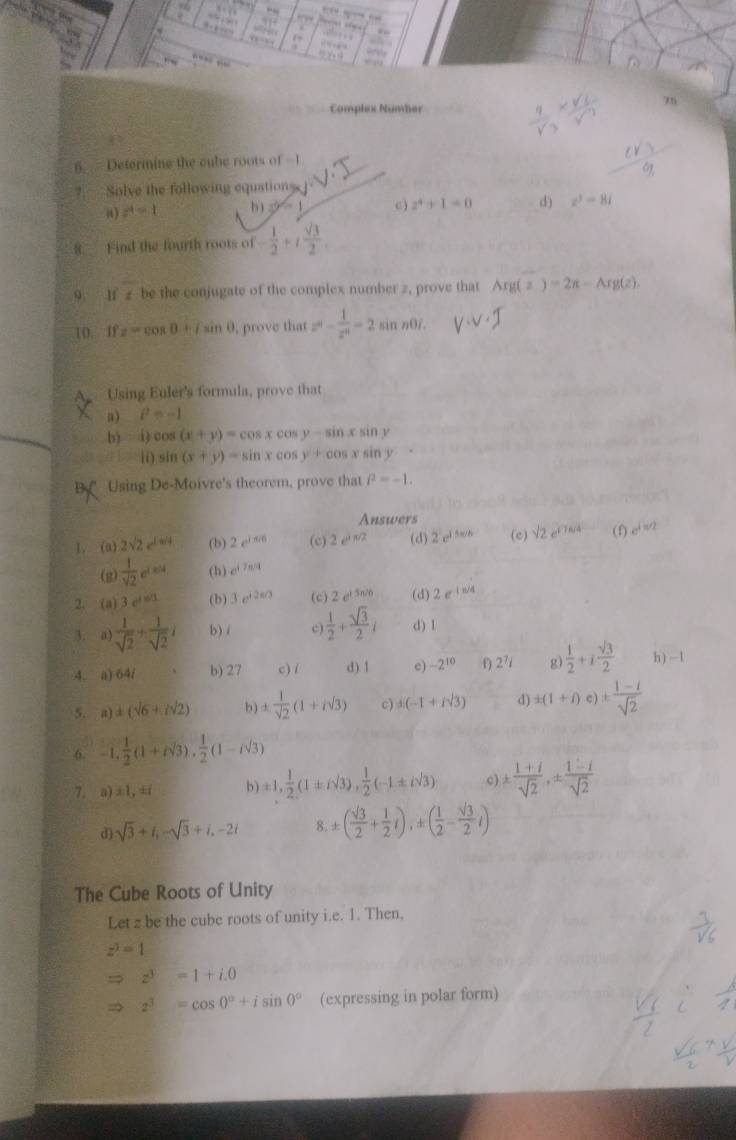 Complex Number 75
6. Determine the cube roots of –1.
7. Solve the following equations V.I
a) z⁴ = 1 b) z⁶ = 1 c) z⁴ + 1 = 0 d) z³ = 8i
8. Find the fourth roots of –1/2 + i √3/2.
9. If z̅ be the conjugate of the complex number z, prove that Arg( z̅ ) = 2π – Arg(z).
10. If z = cos θ + i sin θ, prove that zⁿ – 1/zⁿ = 2 sin nθi. V.V.I
A. Using Euler's formula, prove that
a) i² = –1
b) i) cos (x + y) = cos x cos y – sin x sin y
ii) sin (x + y) = sin x cos y + cos x sin y
B. Using De-Moivre's theorem, prove that i² = –1.
Answers
1. (a) 2√2 e^(i π/4) (b) 2 e^(i π/6) (c) 2 e^(i π/2) (d) 2 e^(i 5π/6) (e) √2 e^(i 7π/4) (f) e^(i π/2)
(g) 1/√2 (h) e^(i 7π/4)
2. (a) 3 e^(i π/3) (b) 3 e^(i 2π/3) (c) 2 e^(i 5π/6) (d) 2 e^(–i π/4)
3. a) 1/√2 + 1/√2 i b) i c) 1/2 + √3/2 i d) 1
4. a) 64i b) 27 c) i d) 1 e) –2¹⁰ f) 2⁷i g) 1/2 + i √3/2 h) –1
5. a) ± (√6 + i√2) b) ± 1/√2 (1 + i√3) c) ±(–1 + i√3) d) ±(1 + i) e) ± (1 – i)/√2
6. –1, 1/2 (1 + i√3), 1/2 (1 – i√3)
7. a) ±1, ±i b) ±1, 1/2 (1 ± i√3), 1/2 (–1 ± i√3) c) ± (1 + i)/√2, ± (1 – i)/√2
d) √3 + i, –√3 + i, –2i 8. ± (√3/2 + 1/2 i), ± (1/2 – √3/2 i)
The Cube Roots of Unity
Let z be the cube roots of unity i.e. 1. Then,
z³ = 1
⇒ z³ = 1 + i.0
⇒ z³ = cos 0° + i sin 0° (expressing in polar form)